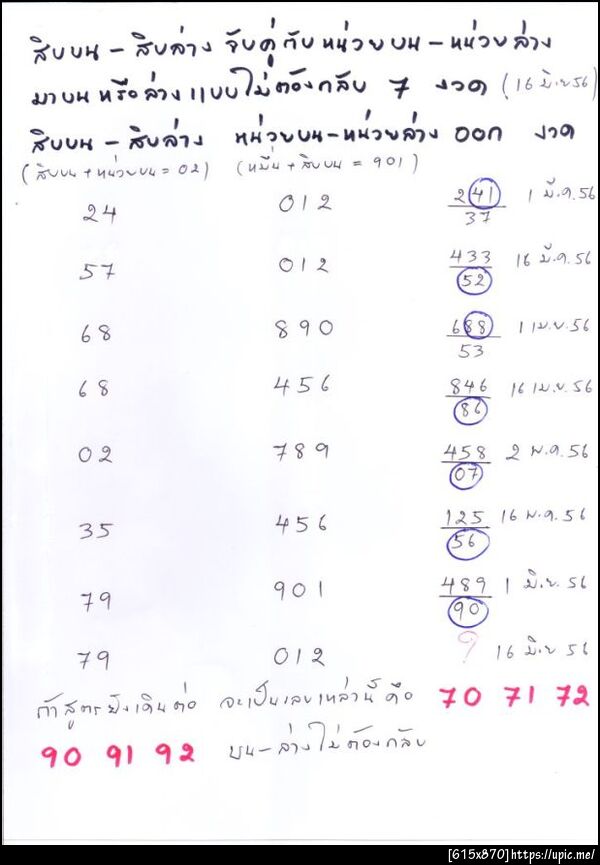 สิบบน - สิบล่าง จับคู่กับหน่วยบน - หน่วยล่าง
มาบนหรือล่างแบบไม่ต้องกลับ 7 งวด (16 มิ.ย 56)
สิบบน - สิบล่าง หน่วยบน - หน่วยล่าง ออก งวด
(สิบบน + หน่วยบน = 02) (หมื่น + สิบบน = 901)
24 012 241 1 มี.ค.56
37
57 012 433 16 มี.ค.56
52
68 890 688 1 เม.ย.56
53
68 456 846 16 เม.ย.56
86
02 789 458 2 พ.ค.56
07
35 456 125 16 พ.ค.56
56
79 901 489 1 มิ.ย.56
90
79 012 ? 16 มิ.ย 56
ถ้าสูตรยังเดินต่อ จะเป็นเลขเหล่านี้คือ 70 71 72
90 91 92 บน - ล่างไม่ต้องกลับ
[615x870]https://upic.me/